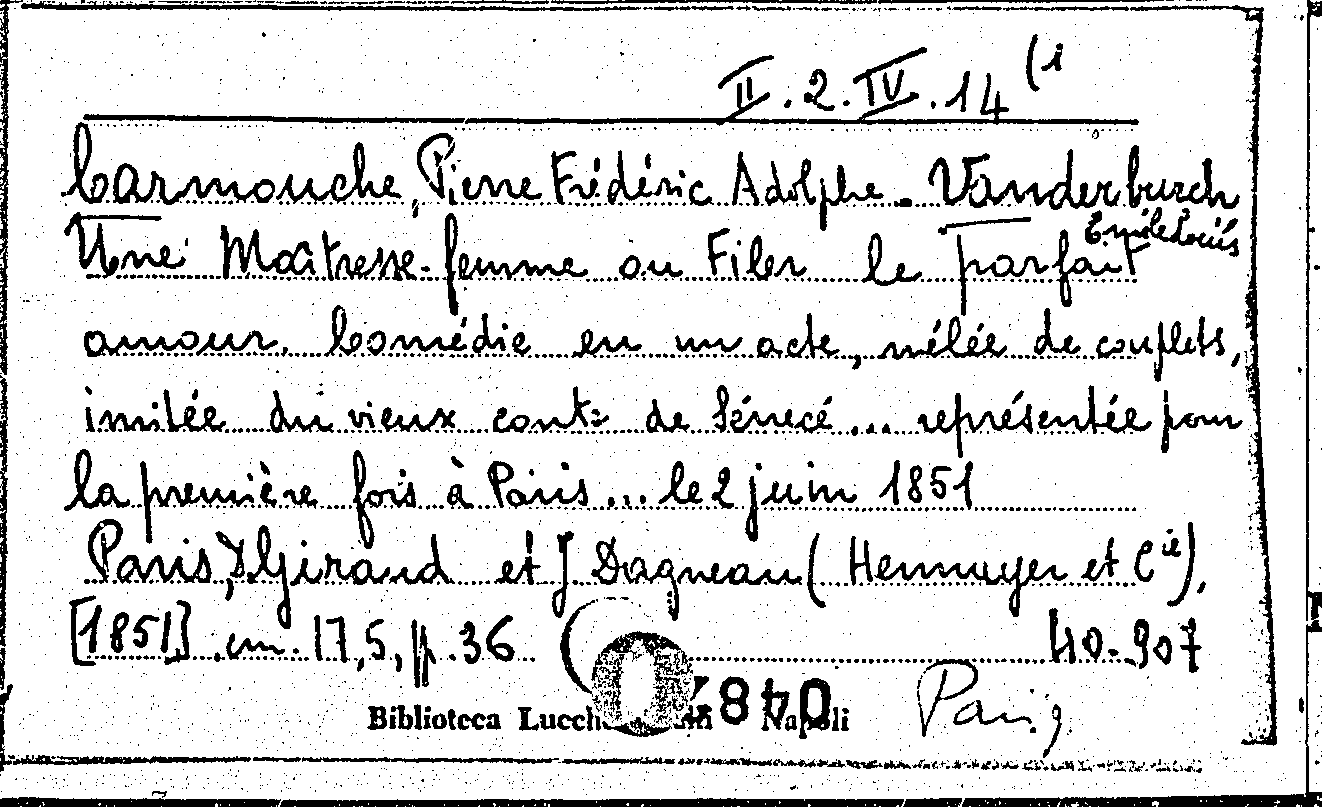 II.2.IV.14 (1
Carmouche, Pierre Frédéric Adolphe. Vanderburch
Emile Louis
Une Maîtresse-femme ou Filer le parfait
amour. Comédie en un acte, mêlée de couplets,
imitée du vieux conte de Sénecé... représentée pour
la première fois à Paris... le 2 juin 1851
Paris, D. Giraud et J Dagneau (Hennuyer et Cie),
[1851] .cm. 17,5, p. 36
40.907
Biblioteca Napoli
Parig